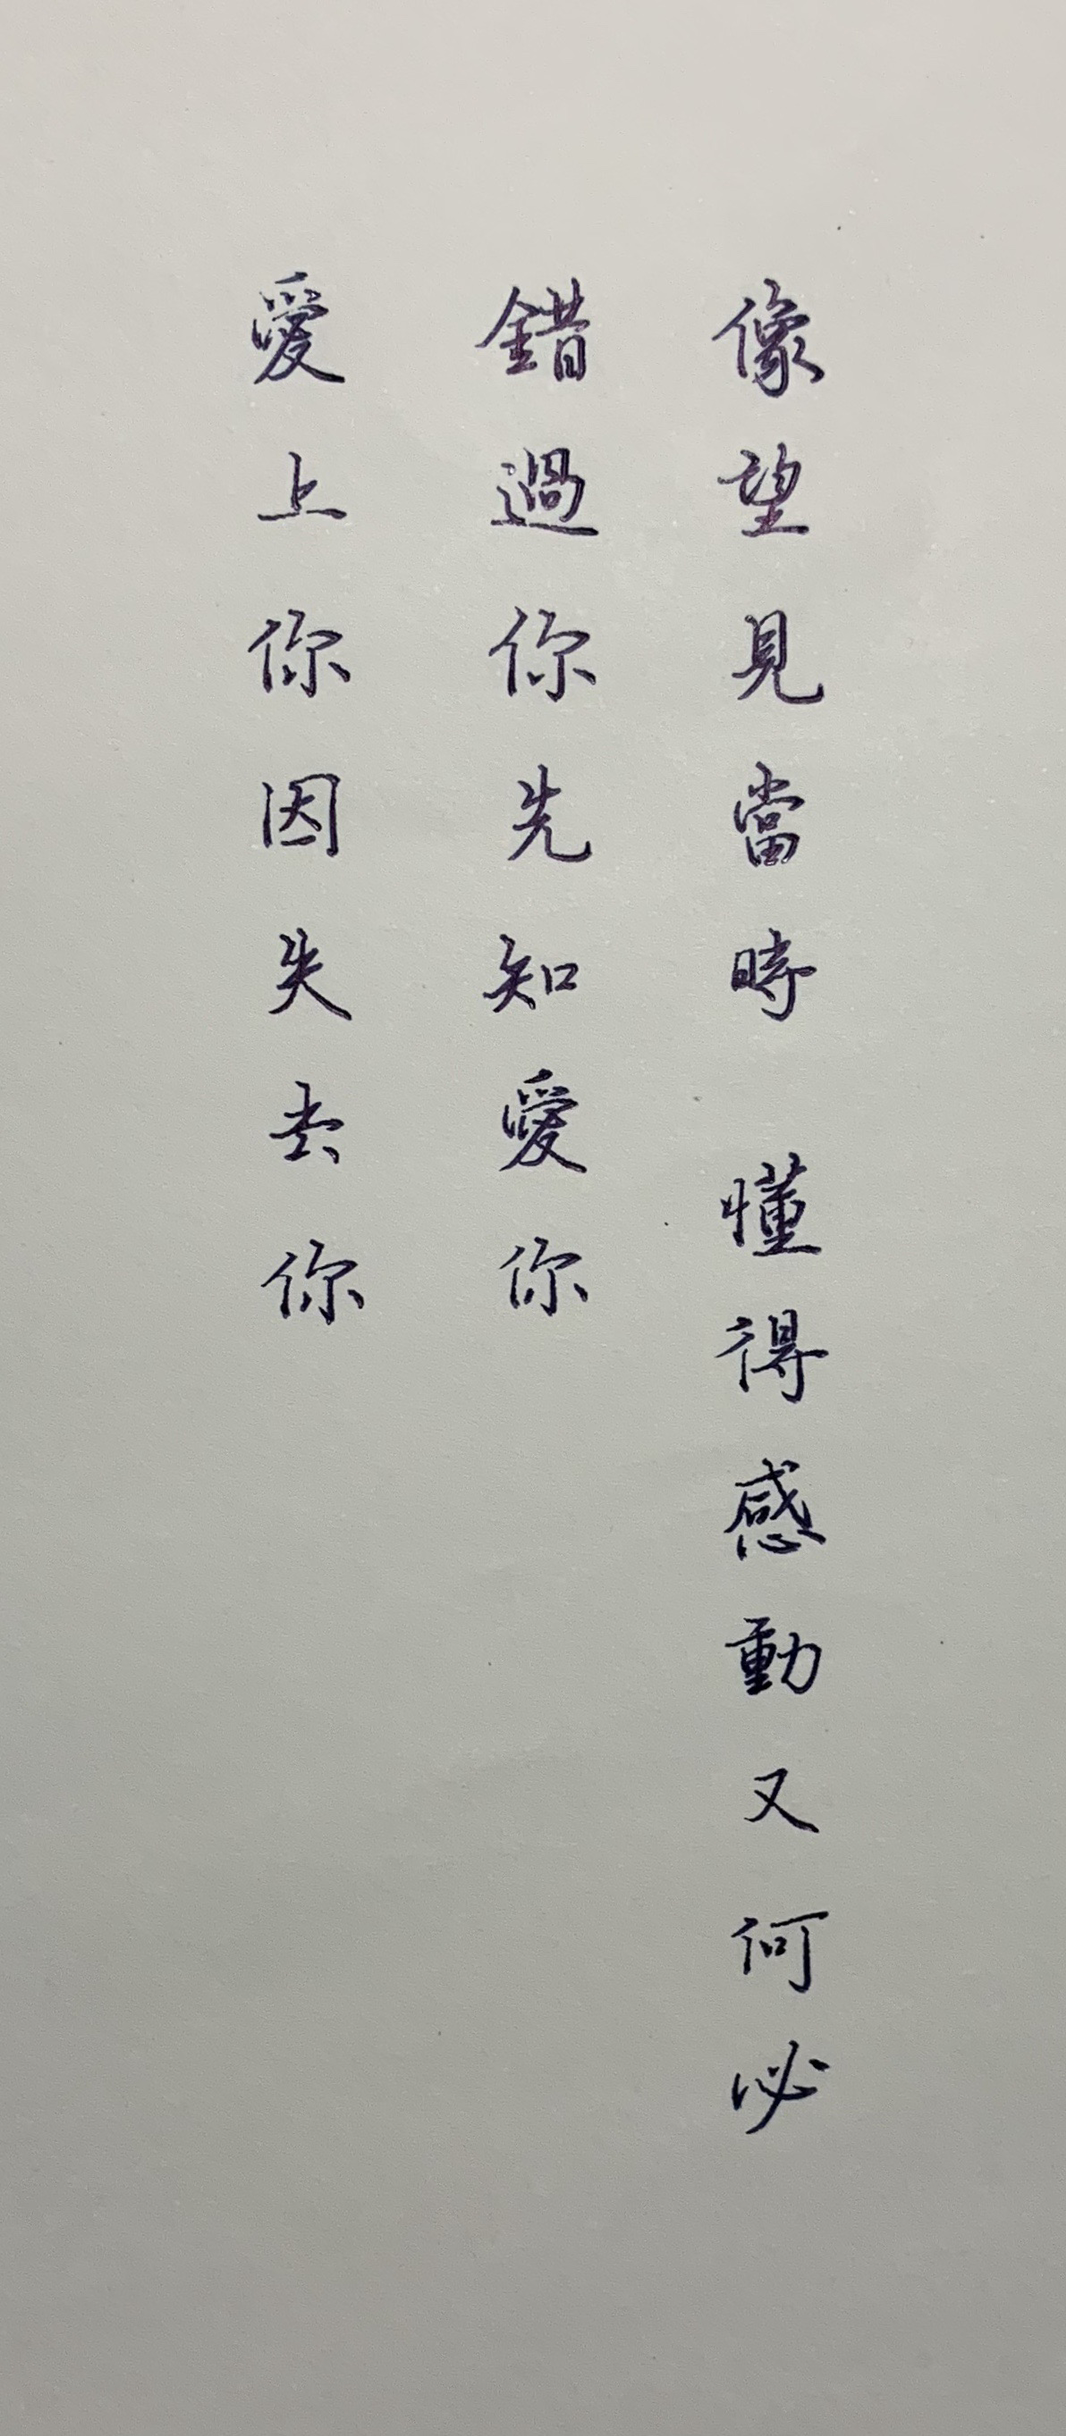 像望見當時 懂得感動又何必
錯過你先知愛你
愛上你因失去你